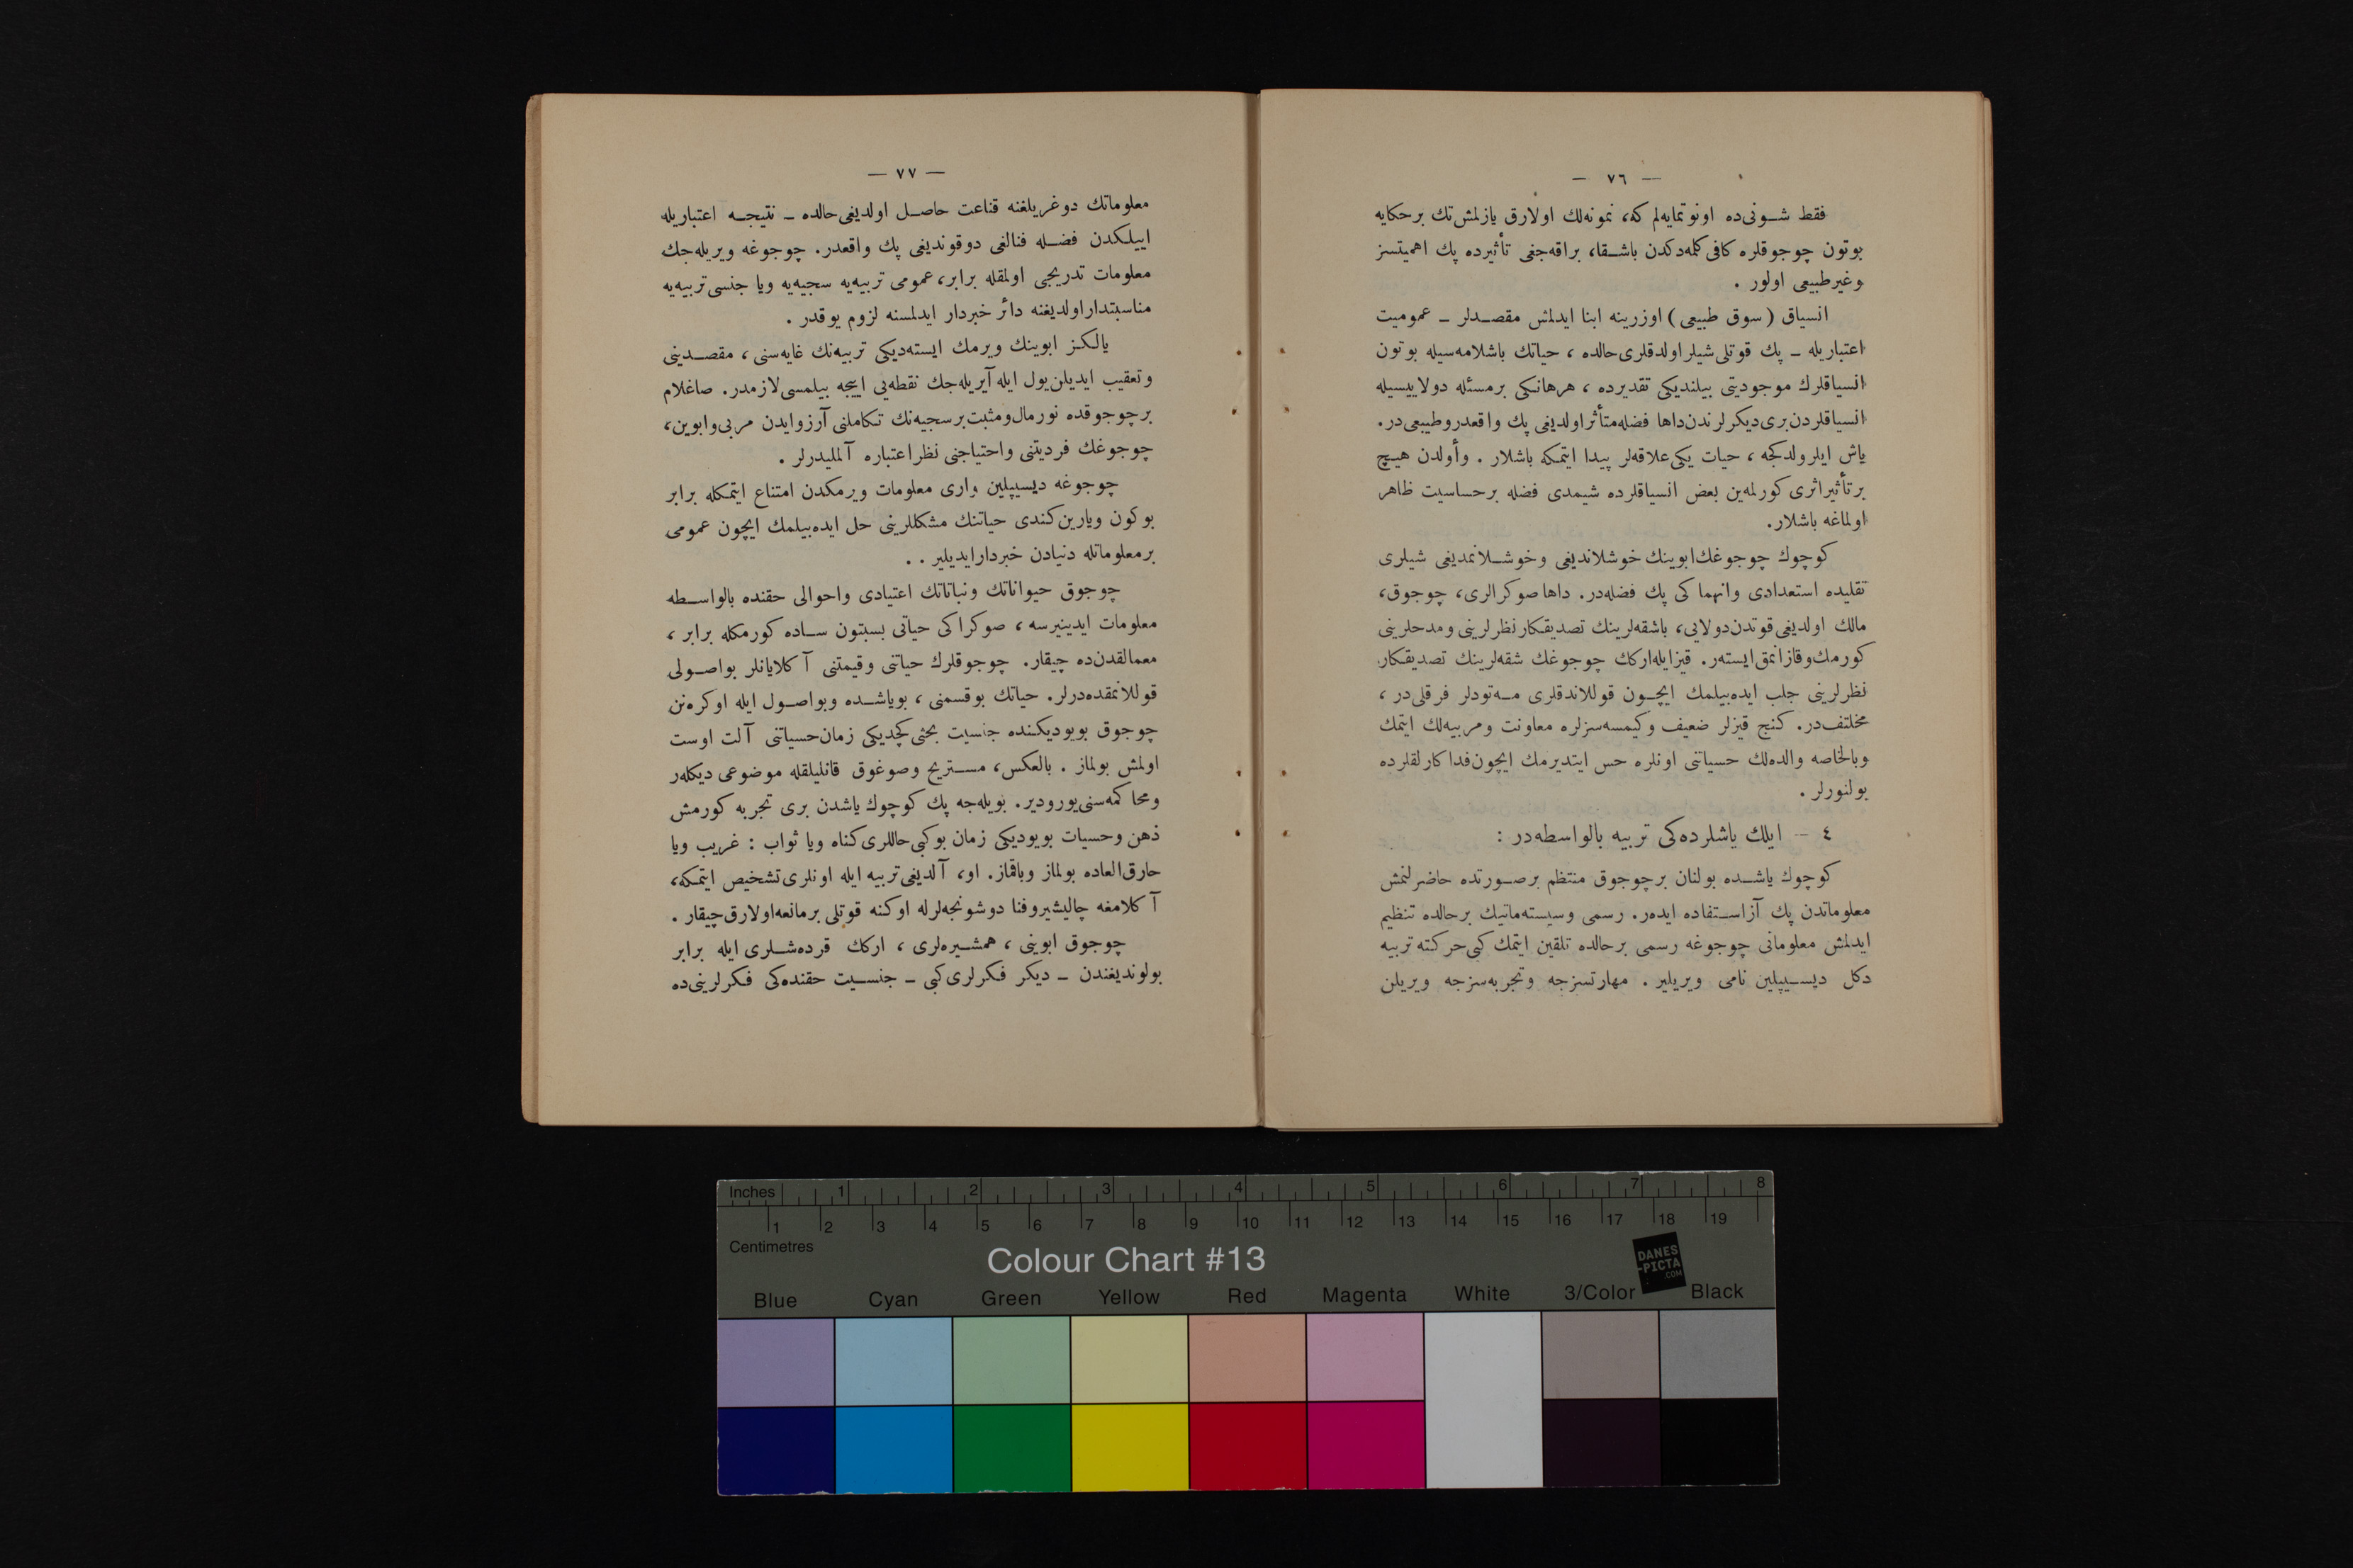 — ٧٦ —
فقط شونی‌ده اونوتمایه‌لم که، نمونه‌لك اولارق یازلمش تك برحکایه
بوتون چوجوقلره کافی کلمه‌دکدن باشقا، براقه‌جغی تأثیرده پك اهمیتسز
وغیرطبیعی اولور .
انسیاق (سوق طبیعی) اوزرینه ابنا ایدلمش مقصدلر ـ عمومیت
اعتباریله ـ پك قوتلی شیلر اولدقلری حالده ، حیاتك باشلامه‌سیله بوتون
انسیاقلرك موجودیتی بیلندیکی تقدیرده ، هرهانکی برمسئله دولاییسیله
انسیاقلردن بری دیکرلرندن داها فضله متأثر اولدیغی پك واقعدر وطبیعی در.
یاش ایلرولدکجه ، حیات یکی علاقه‌لر پیدا ایتمکه باشلار . وأولدن هیچ
برتأثیر اثری کورلمه‌ین بعض انسیاقلرده شیمدی فضله برحساسیت ظاهر
اولماغه باشلار.
کوچوك چوجوغك ابوینك خوشلاندیغی وخوشلانمدیغی شیلری
تقلیده استعدادی وانهماکی پك فضله‌در. داها صوکرالری، چوجوق،
مالك اولدیغی قوتدن دولایی، باشقه‌لرینك تصدیقکار نظرلرینی ومدحلرینی
کورمك وقازانمق ایسته‌ر. قیز ایله ارکك چوجوغك شقه‌لرینك تصدیقکار
نظرلرینی جلب ایده‌بیلمك ایچون قوللاندقلری مه‌تودلر فرقلی در ،
مختلف‌در. کنج قیزلر ضعیف وکیمسه‌سزلره معاونت ومربیه‌لك ایتمك
وبالخاصه والده‌لك حسیاتنی اونلره حس ایتدیرمك ایچون فداکارلقلرده
بولنورلر .
٤ — ایلك یاشلرده‌کی تربیه بالواسطه‌در :
کوچوك یاشده بولنان برچوجوق منتظم برصورتده حاضرلنمش
معلوماتدن پك آز استفاده ایده‌ر. رسمی وسیسته‌ماتیك برحالده تنظیم
ایدلمش معلوماتی چوجوغه رسمی برحالده تلقین ایتمك کبی حرکته تربیه
دکل دیسیپلین نامی ویریلیر . مهارتسزجه وتجربه‌سزجه ویریلن
— ٧٧ —
معلوماتك دوغریلغنه قناعت حاصل اولدیغی حالده ـ نتیجه اعتباریله
اییلکدن فضله فنالغی دوقوندیغی پك واقعدر. چوجوغه ویریله‌جك
معلومات تدریجی اولمقله برابر، عمومی تربیه‌یه سجیه‌یه ویا جنسی تربیه‌یه
مناسبتدار اولدیغنه دائر خبردار ایدلمسنه لزوم یوقدر .
یالکز ابوینك ویرمك ایسته‌دیکی تربیه‌نك غایه‌سنی ، مقصدینی
وتعقیب ایدیلن یول ایله آیریله‌جك نقطه‌یی اییجه بیلمسی لازمدر. صاغلام
برچوجوقده نورمال ومثبت برسجیه‌نك تکاملنی آرزو ایدن مربی وابوین،
چوجوغك فردیتنی واحتیاجنی نظراعتباره آلملیدرلر .
چوجوغه دیسیپلین واری معلومات ویرمکدن امتناع ایتمکله برابر
بوکون ویارین کندی حیاتنك مشکللرینی حل ایده‌بیلمك ایچون عمومی
برمعلوماتله دنیادن خبردار ایدیلیر . .
چوجوق حیواناتك ونباتاتك اعتیادی واحوالی حقنده بالواسطه
معلومات ایدینیرسه ، صوکراکی حیاتی بسبتون ساده کورمکله برابر ،
معمالقدن‌ده چیقار. چوجوقلرك حیاتنی وقیمتنی آکلایانلر بواصولی
قوللانمقده‌درلر. حیاتك بوقسمنی ، بویاشده وبواصول ایله اوکره‌نن
چوجوق بویودیکنده جنسیت بحثی کچدیکی زمان حسیاتنی آلت اوست
اولمش بولماز . بالعکس، مستریح وصوغوق قانلیلقله موضوعی دیکله‌ر
ومحاکمه‌سنی یورودیر. بویله‌جه پك کوچوك یاشدن بری تجربه کورمش
ذهن وحسیات بویودیکی زمان بوکبی حاللری کناه ویا ثواب : غریب ویا
حارق‌العاده بولماز وباقماز. او، آلدیغی تربیه ایله اونلری تشخیص ایتمکه،
آکلامغه چالیشیر وفنا دوشونجه‌لرله اوکنه قوتلی برمانعه اولارق چیقار .
چوجوق ابوینی ، همشیره‌لری ، ارکك قرده‌شلری ایله برابر
بولوندیغندن ـ دیکر فکرلری کبی ـ جنسیت حقنده‌کی فکرلرینی‌ده
Inches 1 2 3 4 5 6 7 8
1 2 3 4 5 6 7 8 9 10 11 12 13 14 15 16 17 18 19
Centimetres
Colour Chart #13
DANES
-PICTA
.COM
Blue Cyan Green Yellow Red Magenta White 3/Color Black